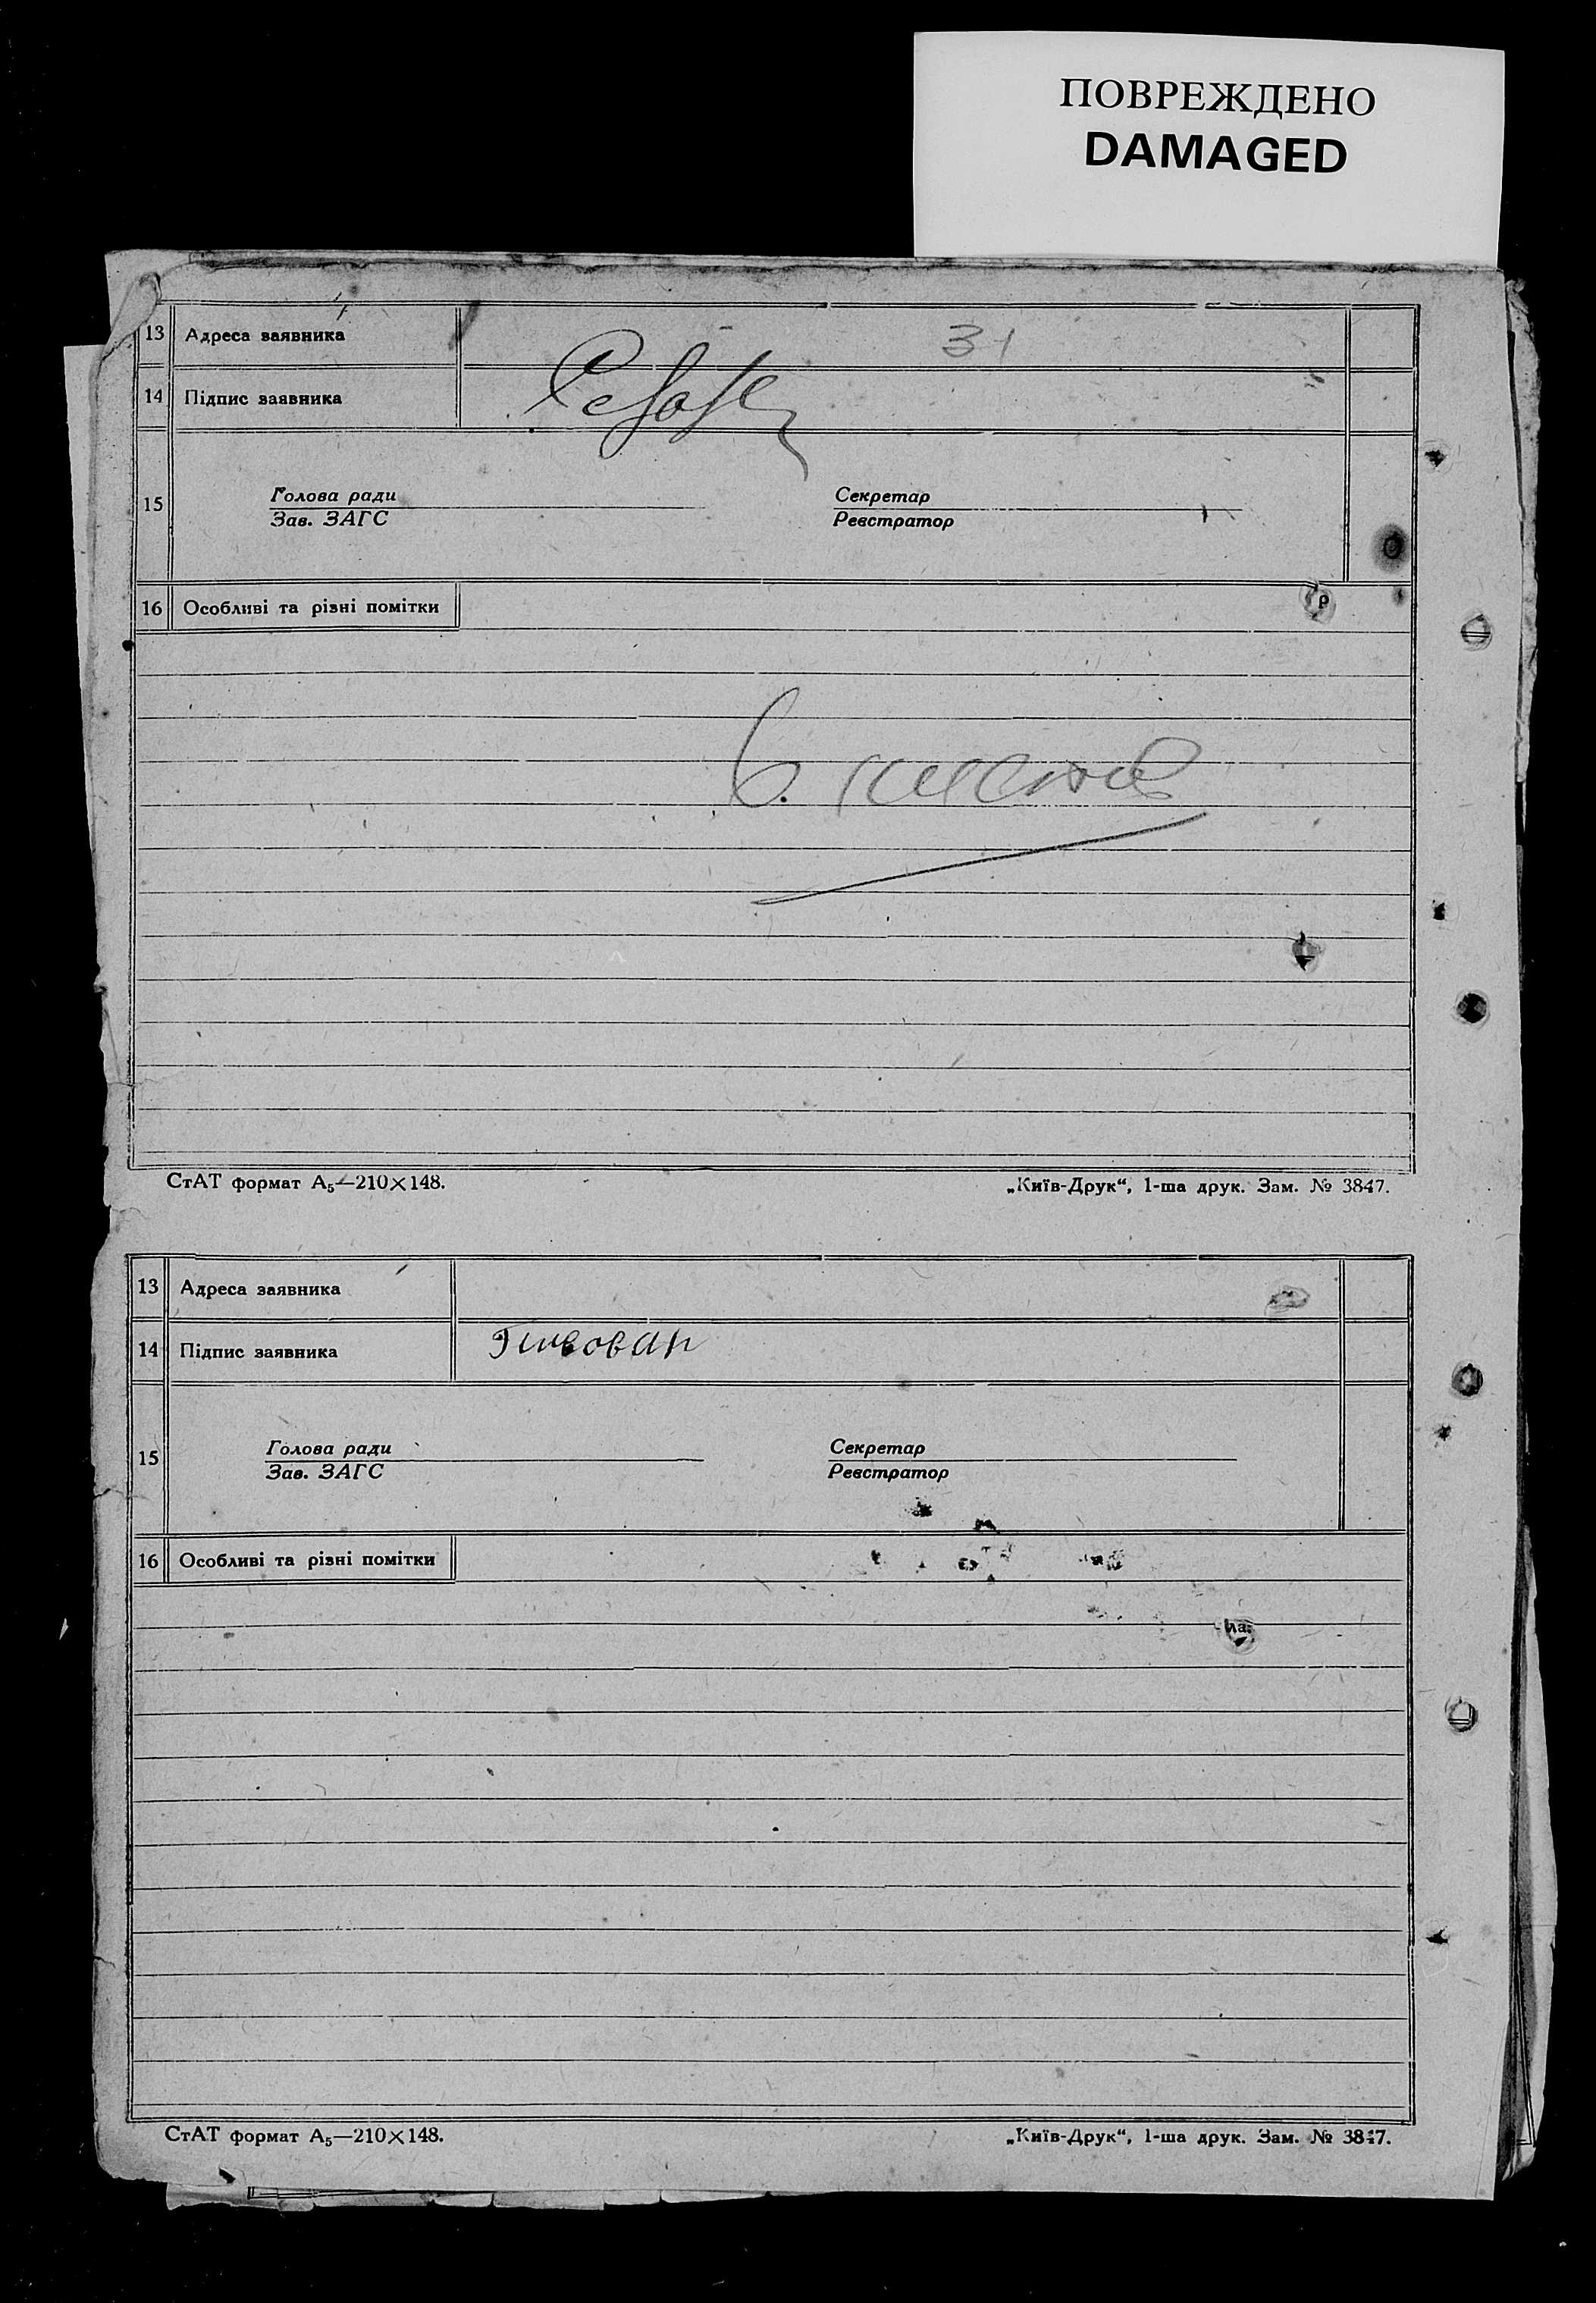 ПОВРЕЖДЕНО
DAMAGED
13 Адреса заявника 31
14 Підпис заявника
Голова ради Секретар
15
Зав. ЗАГС Реєстратор
16 Особливі та різні помітки
СтАТ формат А₅—210×148. „Київ-Друк“, 1-ша друк. Зам. № 3847.
13 Адреса заявника
14 Підпис заявника
Голова ради Секретар
15
Зав. ЗАГС Реєстратор
16 Особливі та різні помітки
СтАТ формат А₅—210×148. „Київ-Друк“, 1-ша друк. Зам. № 3847.